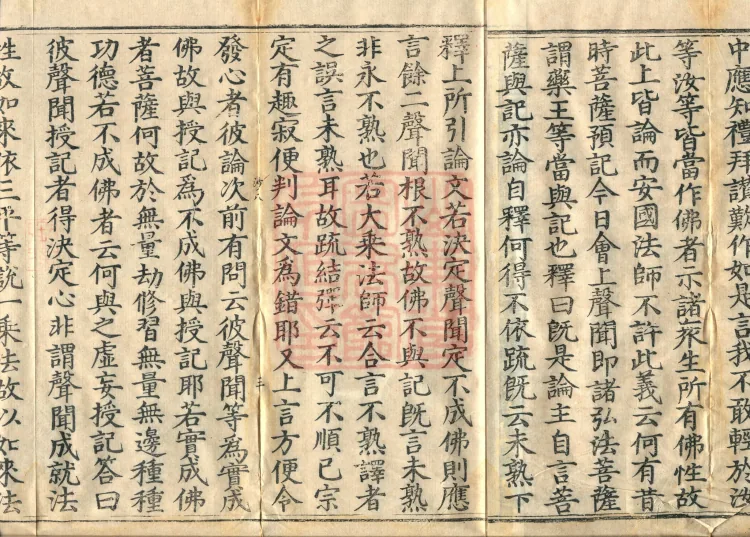 中應知禮拜讚歎作如是言我不敢輕於汝
等汝等皆當作佛者示諸衆生所有佛性故
此上皆論而安國法師不許此義云何有昔
時菩薩預記今日會上聲聞即諸弘法菩薩
謂藥王等當與記也釋曰旣是論主自言菩
薩與記亦論自釋何得不依疏旣云未熟下
釋上所引論文若決定聲聞定不成佛則應
言餘二聲聞根不熟故佛不與記旣言未熟
非永不熟也若大乘法師云合言不熟譯者
之誤言未熟耳故疏結彈云不可不順已宗
定有趣寂便判論文爲錯耶又上言方便令
發心者彼論次前有問云彼聲聞等為實成
佛故與授記爲不成佛與授記耶若實成佛
者菩薩何故於無量劫修習無量無邊種種
功德若不成佛者云何與之虛妄授記答曰
彼聲聞授記者得決定心非謂聲聞成就法
性故如來依三平等說一乘法故以如來法